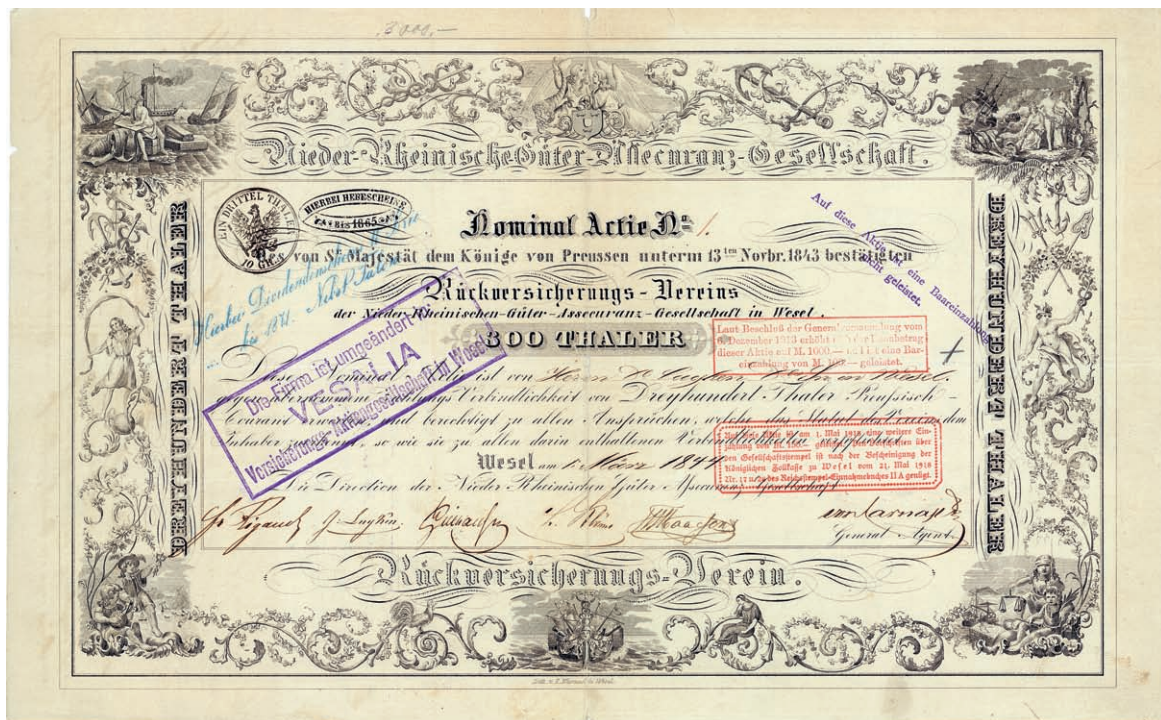 3000,—
Nieder-Rheinische Güter-Assecuranz-Gesellschaft.
EIN DRITTEL THALER
10 GR.
HIERBEI HEBESCHEINE
BIS 1865
Nominal Actie No 1.
von Sr. Majestät dem Könige von Preussen unterm 13ten Novbr. 1843 bestätigten
Rückversicherungs-Vereins
der Nieder-Rheinischen-Güter-Assecuranz-Gesellschaft in Wesel.
300 THALER
Auf diese Aktie ist eine Baareinzahlung
nicht geleistet.
Hierbei Dividendenscheine
bis 1871. Nebst Talon
Die Firma ist umgeändert in:
VESALIA
Versicherungs-Aktiengesellschaft in Wesel
Laut Beschluß der Generalversammlung vom
6. Dezember 1913 erhöht sich der Nennbetrag
dieser Aktie auf M. 1000.—
einzahlung von M. 100.— geleistet.
Diese Nominal Actie ist von Herrn
gegen übernommene Zahlungs Verbindlichkeit von Dreyhundert Thaler Preussisch
Courant und berechtigt zu allen Ansprüchen, welche das Statut des Vereins dem
Inhaber so wie sie zu allen darin enthaltenen Verbindlichkeiten verpflichtet.
am 1. Mai 1918 eine weitere Ein-
zahlung von M. geleistet. Den Vorschriften über
den Gesellschaftsstempel ist nach der Bescheinigung der
Königlichen Zollkasse zu Wesel vom 21. Mai 1918
Nr. 17 des Reichsstempel-Einnahmebuches II A genügt.
Wesel am 1. März 1844
Die Direction der Nieder Rheinischen Güter Assecuranz Gesellschaft
General Agent
Rückversicherungs-Verein.
DREYHUNDERT THALER
DREYHUNDERT THALER